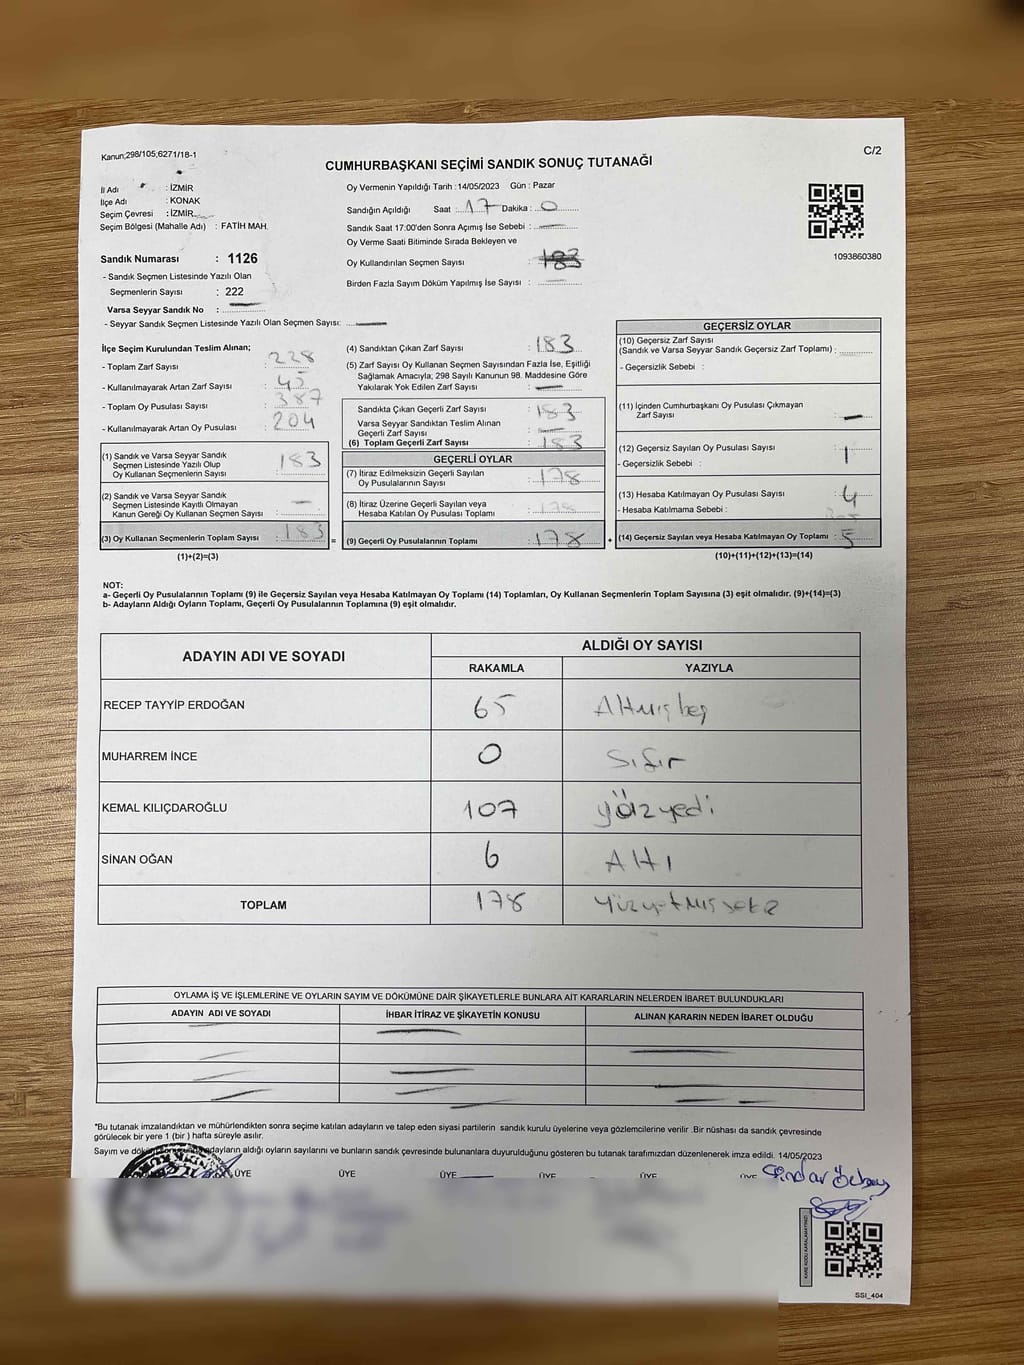 Kanun;298/105,6271/18-1
C/2
CUMHURBAŞKANI SEÇİMİ SANDIK SONUÇ TUTANAĞI
İl Adı : İZMİR
İlçe Adı : KONAK
Seçim Çevresi : İZMİR
Seçim Bölgesi (Mahalle Adı) : FATİH MAH.
Oy Vermenin Yapıldığı Tarih : 14/05/2023 Gün : Pazar
Sandığın Açıldığı Saat : 17 Dakika : 0
Sandık Saat 17:00'den Sonra Açımış İse Sebebi :
Oy Verme Saati Bitiminde Sırada Bekleyen ve
Oy Kullandırılan Seçmen Sayısı : 183
Birden Fazla Sayım Döküm Yapılmış İse Sayısı :
1093860380
Sandık Numarası : 1126
- Sandık Seçmen Listesinde Yazılı Olan
Seçmenlerin Sayısı : 222
Varsa Seyyar Sandık No :
- Seyyar Sandık Seçmen Listesinde Yazılı Olan Seçmen Sayısı:
İlçe Seçim Kurulundan Teslim Alınan;
- Toplam Zarf Sayısı : 228
- Kullanılmayarak Artan Zarf Sayısı : 45
- Toplam Oy Pusulası Sayısı : 387
- Kullanılmayarak Artan Oy Pusulası : 204
(1) Sandık ve Varsa Seyyar Sandık
Seçmen Listesinde Yazılı Olup
Oy Kullanan Seçmenlerin Sayısı : 183
(2) Sandık ve Varsa Seyyar Sandık
Seçmen Listesinde Kayıtlı Olmayan
Kanun Gereği Oy Kullanan Seçmen Sayısı :
(3) Oy Kullanan Seçmenlerin Toplam Sayısı : 183
(1)+(2)=(3)
(4) Sandıktan Çıkan Zarf Sayısı : 183
(5) Zarf Sayısı Oy Kullanan Seçmen Sayısından Fazla İse, Eşitliği
Sağlamak Amacıyla; 298 Sayılı Kanunun 98. Maddesine Göre
Yakılarak Yok Edilen Zarf Sayısı :
Sandıkta Çıkan Geçerli Zarf Sayısı : 183
Varsa Seyyar Sandıktan Teslim Alınan
Geçerli Zarf Sayısı :
(6) Toplam Geçerli Zarf Sayısı : 183
GEÇERLİ OYLAR
(7) İtiraz Edilmeksizin Geçerli Sayılan
Oy Pusulalarının Sayısı : 178
(8) İtiraz Üzerine Geçerli Sayılan veya
Hesaba Katılan Oy Pusulası Toplamı : 178
= (9) Geçerli Oy Pusulalarının Toplamı : 178
GEÇERSİZ OYLAR
(10) Geçersiz Zarf Sayısı
(Sandık ve Varsa Seyyar Sandık Geçersiz Zarf Toplamı) :
- Geçersizlik Sebebi :
(11) İçinden Cumhurbaşkanı Oy Pusulası Çıkmayan
Zarf Sayısı :
(12) Geçersiz Sayılan Oy Pusulası Sayısı : 1
- Geçersizlik Sebebi :
(13) Hesaba Katılmayan Oy Pusulası Sayısı : 4
- Hesaba Katılmama Sebebi :
+ (14) Geçersiz Sayılan veya Hesaba Katılmayan Oy Toplamı : 5
(10)+(11)+(12)+(13)=(14)
NOT:
a- Geçerli Oy Pusulalarının Toplamı (9) ile Geçersiz Sayılan veya Hesaba Katılmayan Oy Toplamı (14) Toplamları, Oy Kullanan Seçmenlerin Toplam Sayısına (3) eşit olmalıdır. (9)+(14)=(3)
b- Adayların Aldığı Oyların Toplamı, Geçerli Oy Pusulalarının Toplamına (9) eşit olmalıdır.
ADAYIN ADI VE SOYADI
ALDIĞI OY SAYISI
RAKAMLA YAZIYLA
RECEP TAYYİP ERDOĞAN 65 Altmışbeş
MUHARREM İNCE 0 Sıfır
KEMAL KILIÇDAROĞLU 107 yüzyedi
SİNAN OĞAN 6 Altı
TOPLAM 178
OYLAMA İŞ VE İŞLEMLERİNE VE OYLARIN SAYIM VE DÖKÜMÜNE DAİR ŞİKAYETLERLE BUNLARA AİT KARARLARIN NELERDEN İBARET BULUNDUKLARI
ADAYIN ADI VE SOYADI İHBAR İTİRAZ VE ŞİKAYETİN KONUSU ALINAN KARARIN NEDEN İBARET OLDUĞU
*Bu tutanak imzalandıktan ve mühürlendikten sonra seçime katılan adayların ve talep eden siyasi partilerin sandık kurulu üyelerine veya gözlemcilerine verilir .Bir nüshası da sandık çevresinde
görülecek bir yere 1 (bir ) hafta süreyle asılır.
Sayım ve adayların aldığı oyların sayılarını ve bunların sandık çevresinde bulunanlara duyurulduğunu gösteren bu tutanak tarafımızdan düzenlenerek imza edildi. 14/05/2023
ÜYE ÜYE ÜYE ÜYE ÜYE ÜYE
KARE KODU KARALAMAYINIZ!
SSI_404